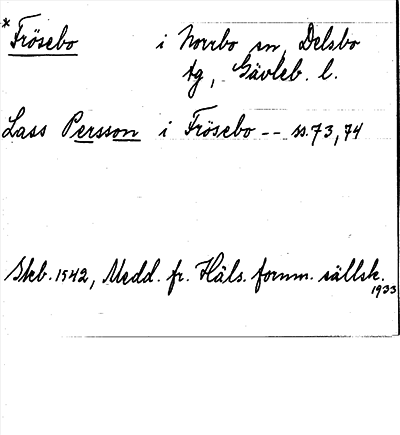 *Frösebo i Norrbo sn, Delsbo
tg, Gävleb. l.
Lass Persson i Frösebo -- ss. 73, 74
Skb. 1542, Medd. fr. Häls. fornm. sällsk.
1933